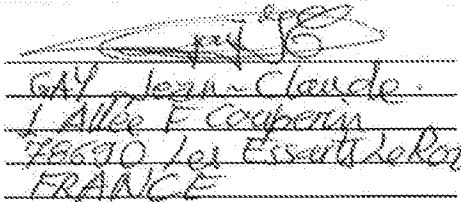 GAY Jean-Claude.
1 Allée F Couperin
78690 Les Essarts Le Roi
FRANCE